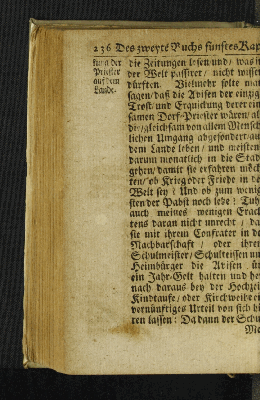 236 Des zweyte Buchs fünftes Kap
die Zeitungen lesen und / was in
der Welt passiret / nicht wissen
dürften. Vielmehr solte man
sagen / daß die Avisen der einzige
Trost und Erquickung derer ein
samen Dorf-Priester wären / als
die / gleichsam von allem Mensch
lichen Umgang abgesondert / auf
dem Lande leben / und meisten
darum monatlich in die Stad
gehen / damit sie erfahren möch
ten / ob Krieg oder Friede in der
Welt sey / Und ob zum wenig
sten der Pabst noch lebe? Tuh
auch meines wenigen Erach
tens daran nicht unrecht / da
sie mit ihrem Confrater in der
Nachbarschaft / oder ihren
Schulmeister / Schulteissen und
Heimbürger die Avisen üm
ein Jahr-Gelt halten und her
nach daraus bey der Hochzeit
Kindtaufe / oder Kirchweihe ein
vernünftiges Urteil von sich hö
ren lassen: Da dann der Schul
der
Priester
auf dem
Lande.